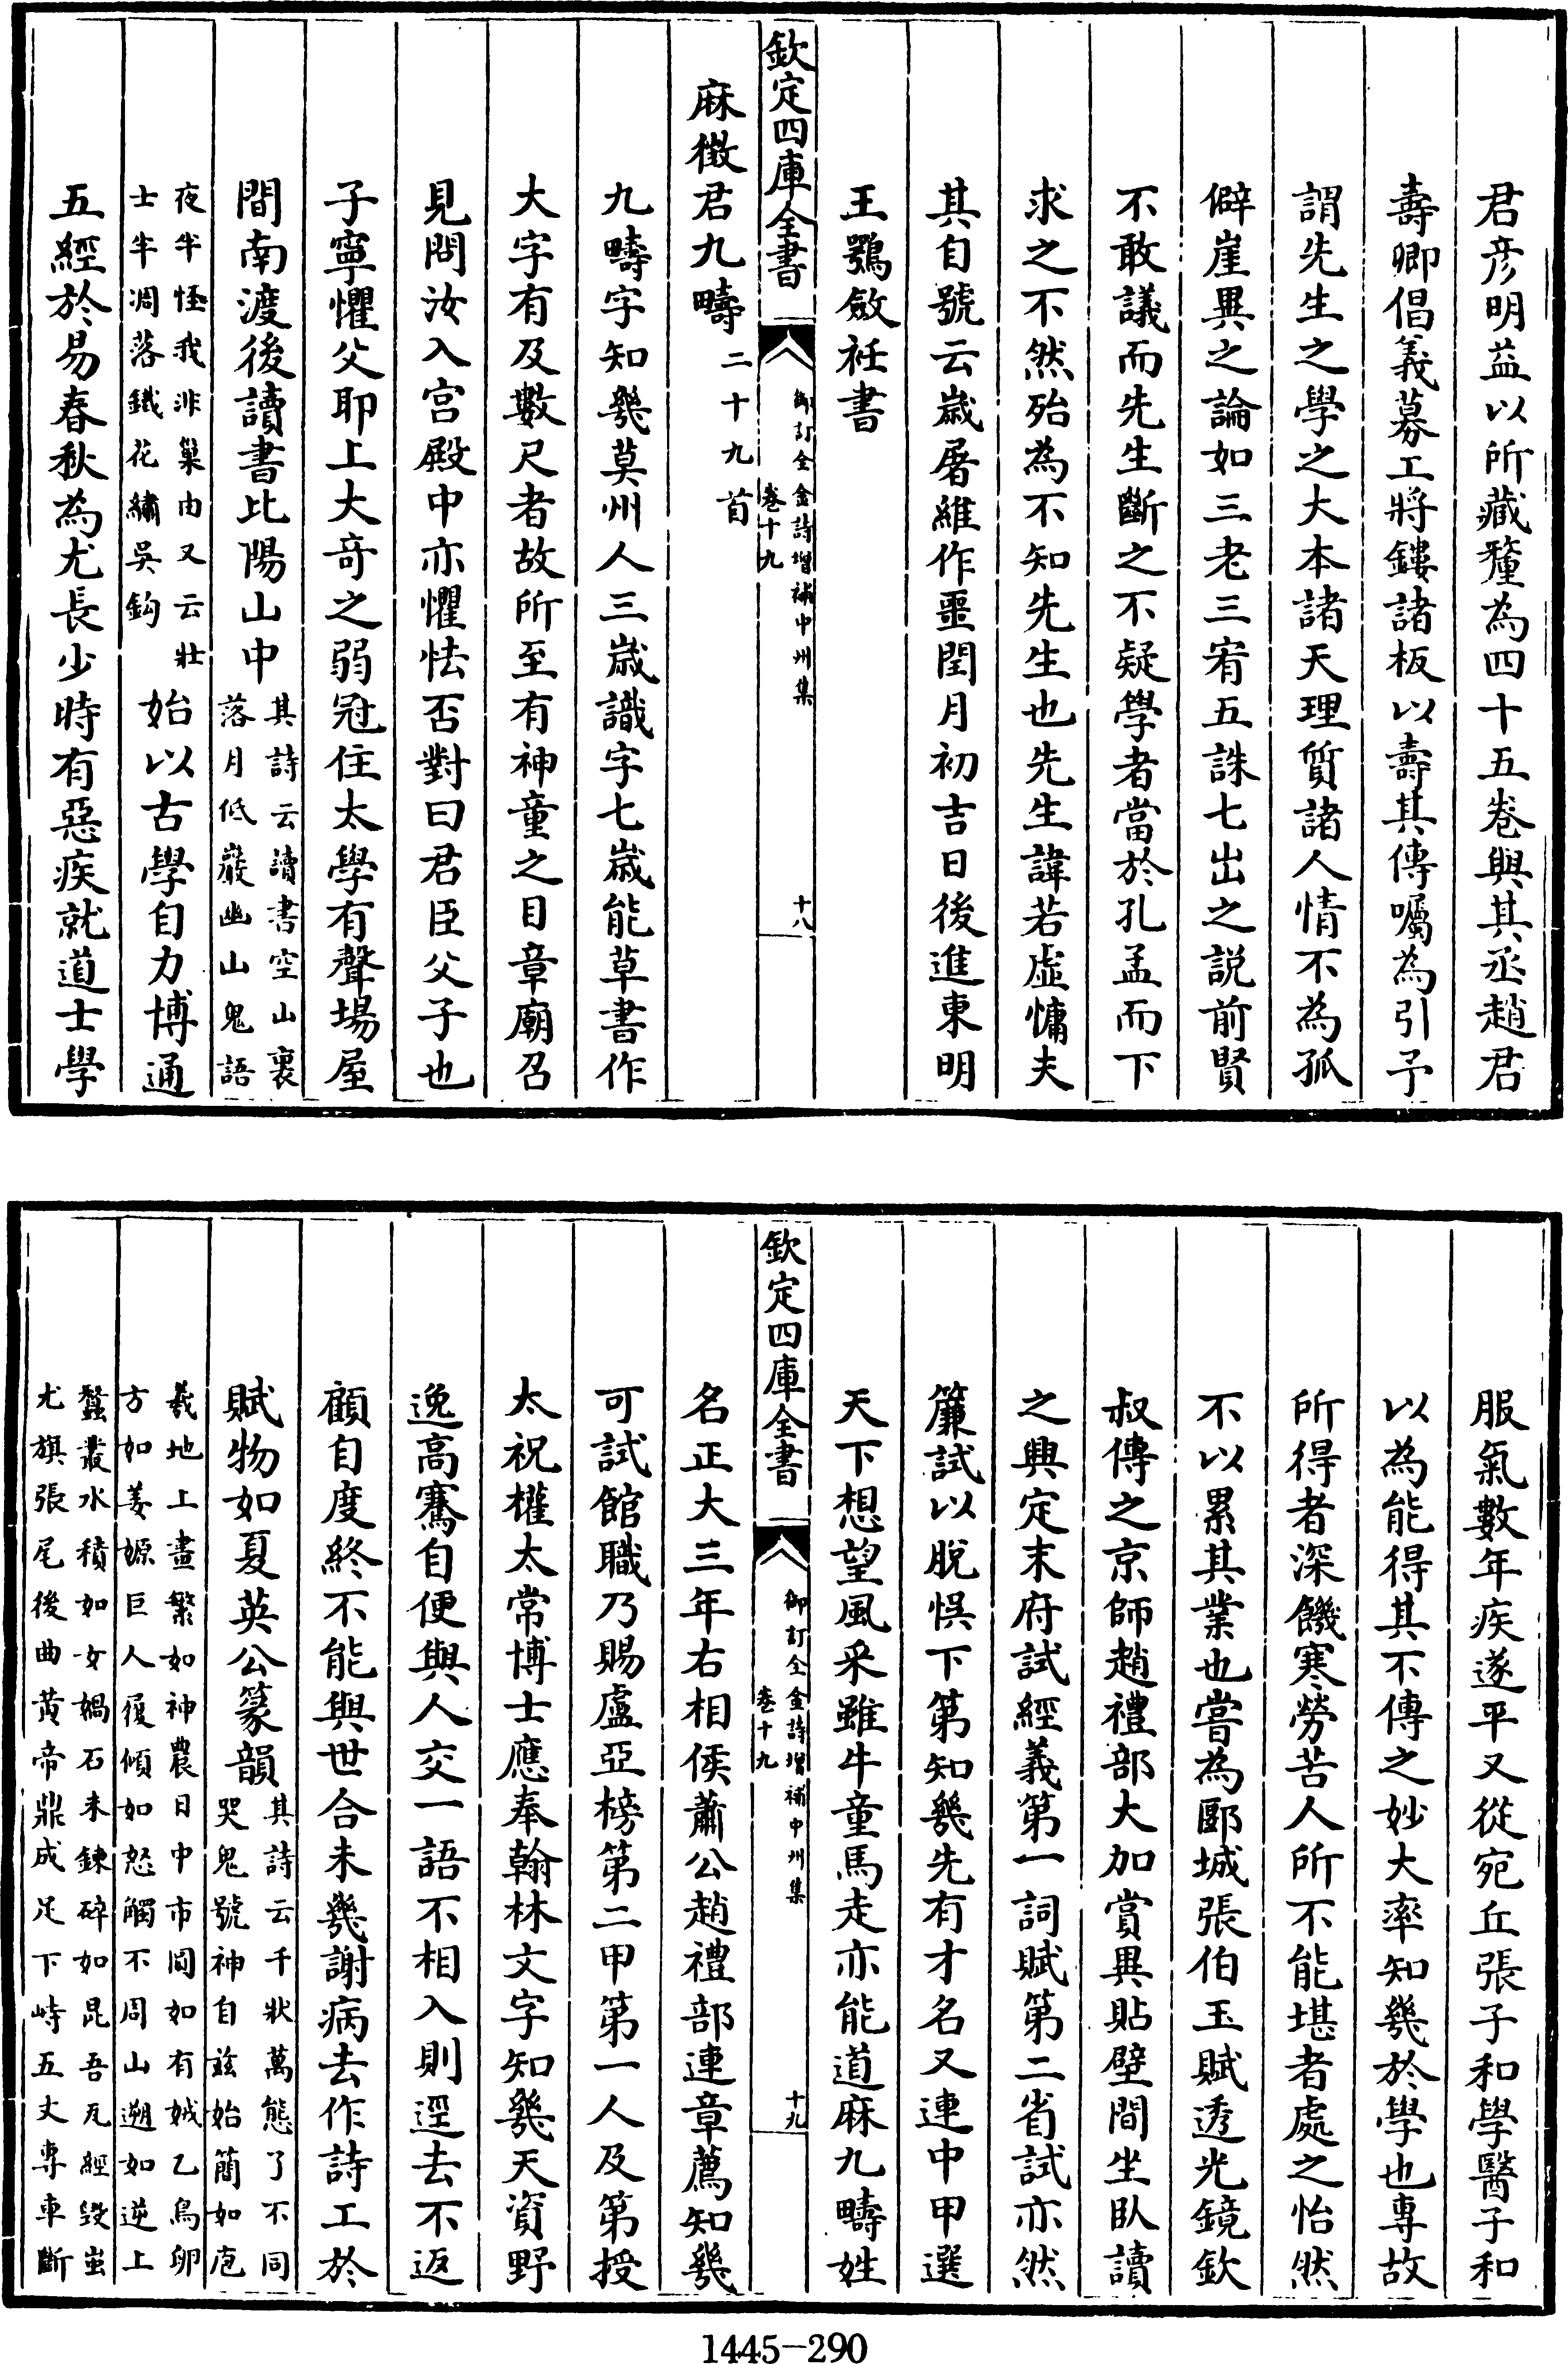 君彦明益以所藏釐為四十五卷與其丞趙君
壽卿倡義募工將鏤諸板以壽其傳囑為引予
謂先生之學之大本諸天理質諸人情不為孤
僻崖異之論如三老三宥五誅七出之説前賢
不敢議而先生斷之不疑學者當於孔孟而下
求之不然殆為不知先生也先生諱若虛慵夫
其自號云歲屠維作噩閏月初吉日後進東明
王鶚斂衽書
欽定四庫全書
御訂全金詩增補中州集
卷十九
十八
麻徵君九疇二十九首
九疇字知幾莫州人三歲識字七歲能草書作
大字有及數尺者故所至有神童之目章廟召
見問汝入宮殿中亦懼怯否對曰君臣父子也
子寧懼父耶上大奇之弱冠住太學有聲場屋
間南渡後讀書比陽山中
其詩云讀書空山裏
落月低巖幽山鬼語
夜半怪我非巢由又云壯
士半凋落鐵花繡吳鈎
始以古學自力博通
五經於易春秋為尤長少時有惡疾就道士學
服氣數年疾遂平又從宛丘張子和學醫子和
以為能得其不傳之妙大率知幾於學也專故
所得者深饑寒勞苦人所不能堪者處之怡然
不以累其業也嘗為郾城張伯玉賦透光鏡欽
叔傳之京師趙禮部大加賞異貼壁間坐臥讀
之興定末府試經義第一詞賦第二省試亦然
簾試以脫悮下第知幾先有才名又連中甲選
天下想望風采雖牛童馬走亦能道麻九疇姓
欽定四庫全書
御訂全金詩增補中州集
卷十九
十九
名正大三年右相侯蕭公趙禮部連章薦知幾
可試館職乃賜盧亞榜第二甲第一人及第授
太祝權太常博士應奉翰林文字知幾天資野
逸高騫自便與人交一語不相入則逕去不返
顧自度終不能與世合未幾謝病去作詩工於
賦物如夏英公篆韻
其詩云千狀萬態了不同
哭鬼號神自兹始簡如庖
羲地上畫繁如神農日中市圓如有娀乙鳥卵
方如姜嫄巨人復傾如怒觸不周山遡如逆上
蠶叢水積如女媧石未鍊碎如昆吾瓦經毀蚩
尤旗張尾後曲黃帝鼎成足下峙五丈專車斷
1445-290